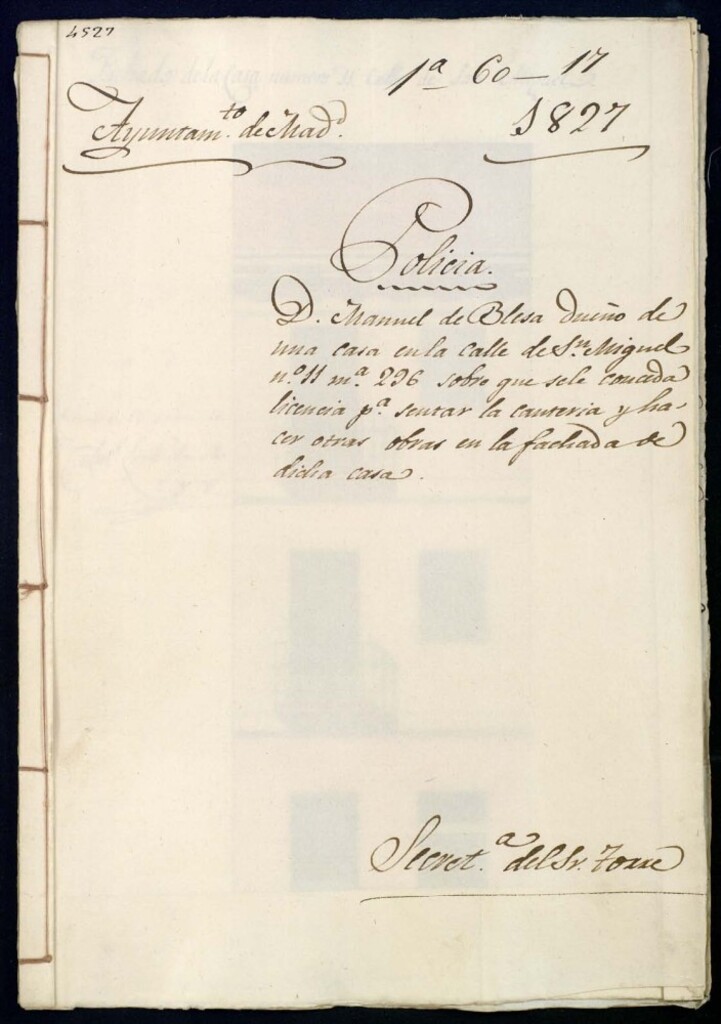 4527
1ª 60-17
Ayuntam.to de Mad.d
1827
Policia.
D. Manuel de Blesa dueño de
una casa en la calle de Sn. Miguel
nº 11 m.ª 296 sobre que sele conceda
licencia pª sentar la canteria y ha-
cer otras obras en la fachada de
dicha casa.
Secret.ª del Sr. Torre